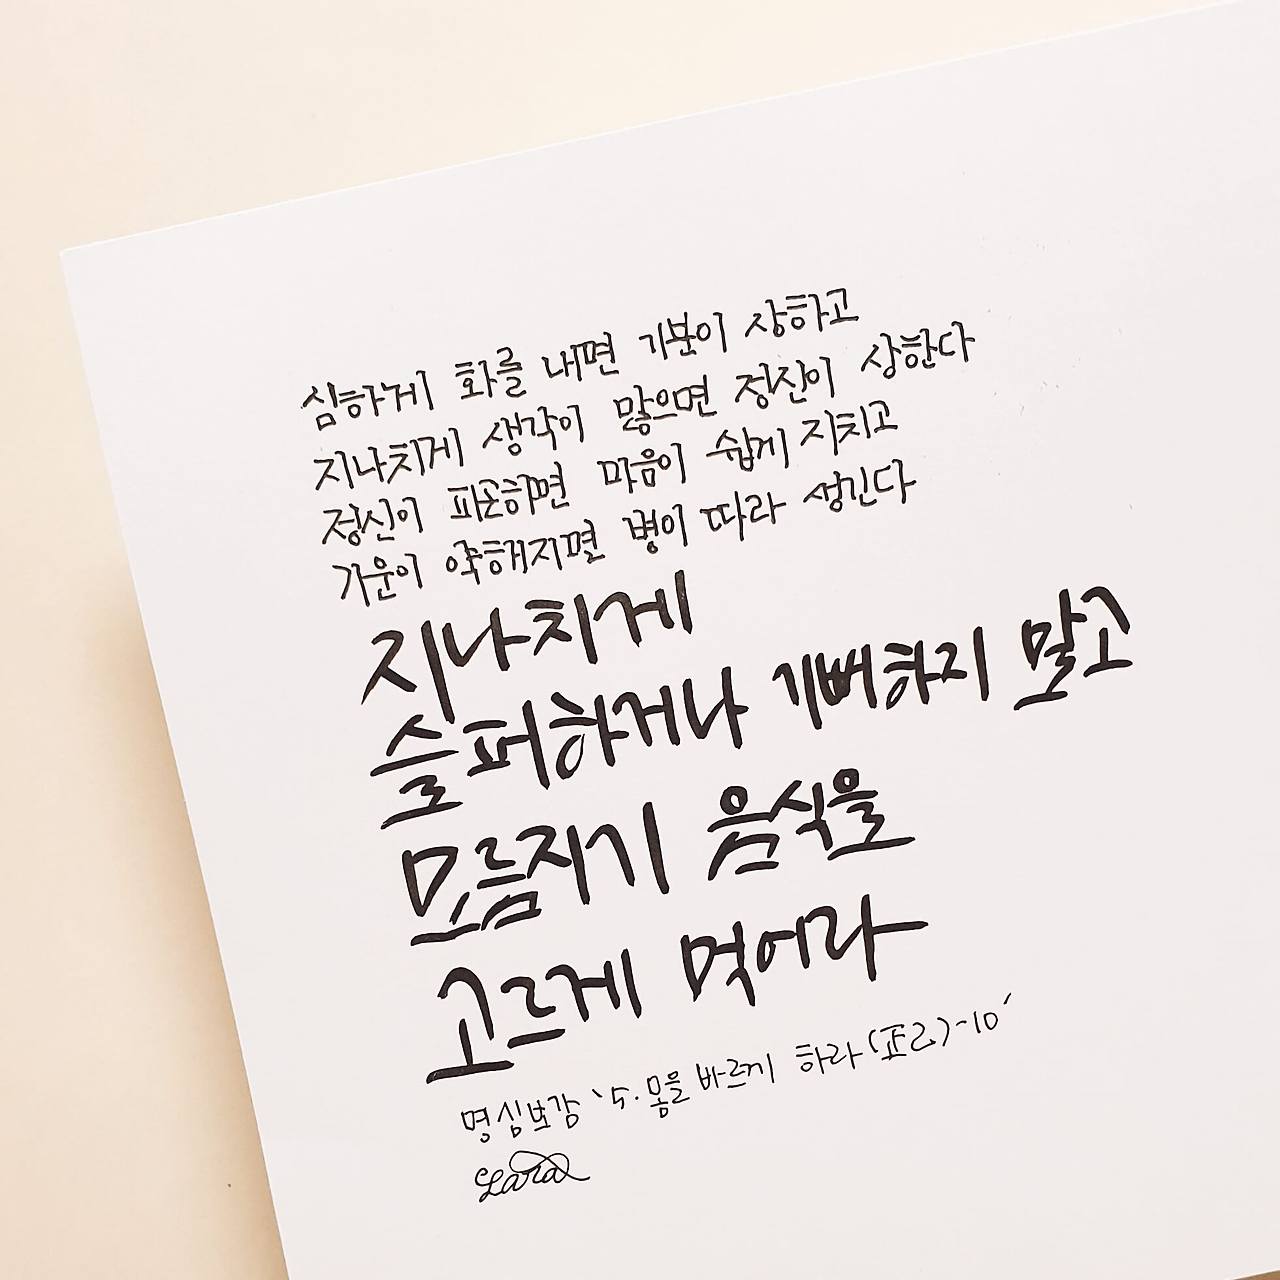 심하게 화를 내면 기분이 상하고
지나치게 생각이 많으면 정신이 상한다
정신이 피곤하면 마음이 쉽게 지치고
기운이 약해지면 병이 따라 생긴다
지나치게
슬퍼하거나 기뻐하지 말고
모름지기 음식을
고르게 먹어라
명심보감 '5. 몸을 바르게 하라(正己)-10'
Lara